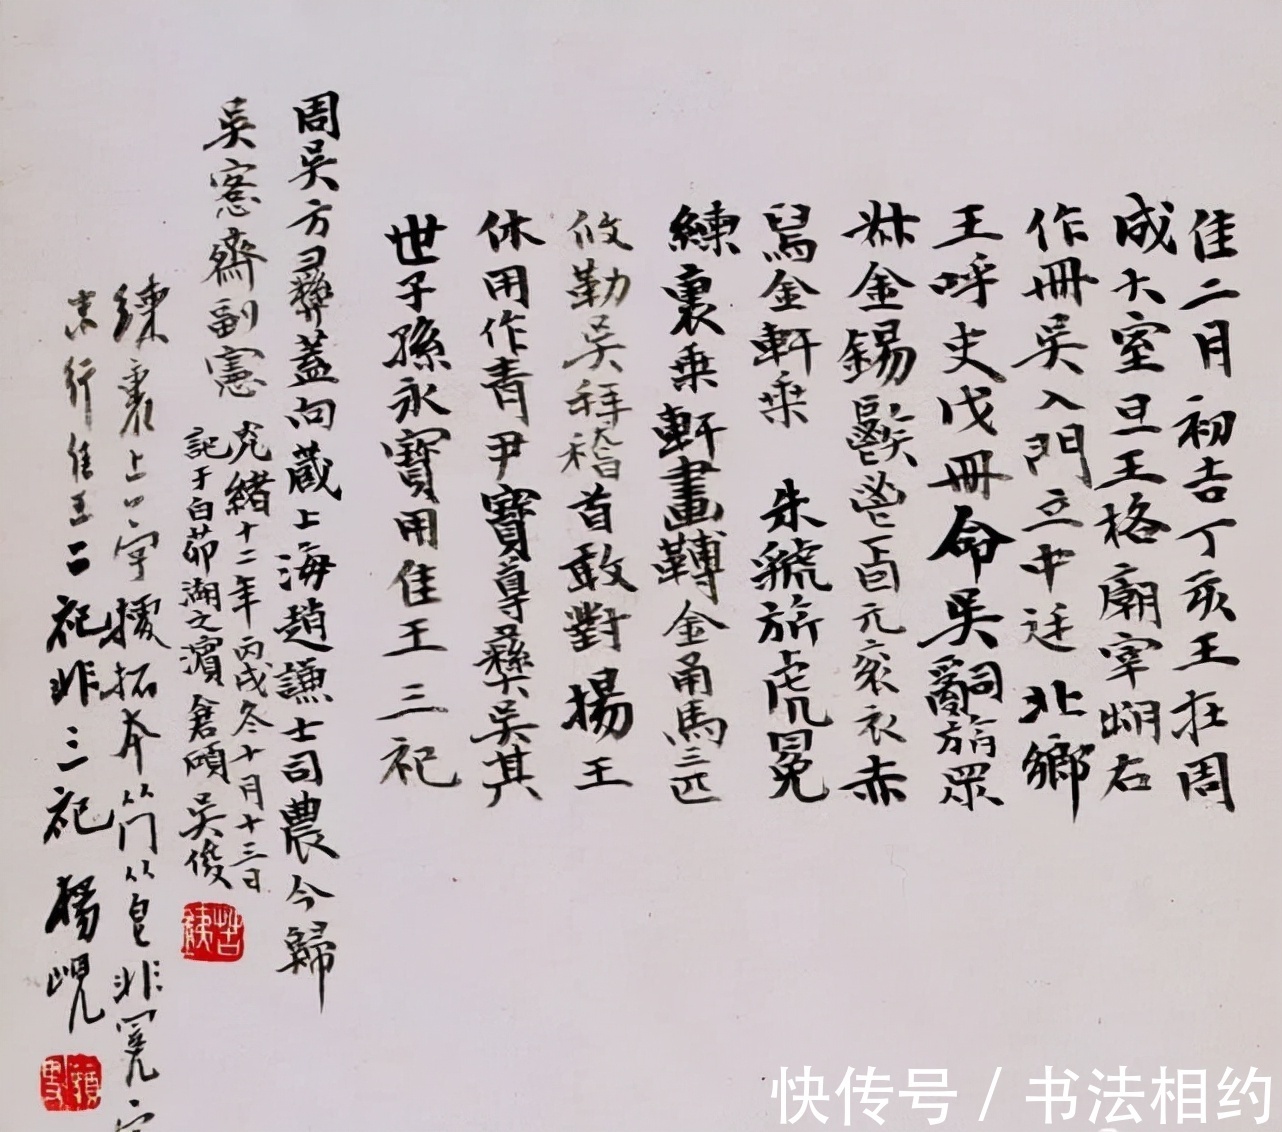 隹二月初吉丁亥王在周
成大室旦王格廟宰朏右
作冊吳入門立中廷北鄉
王呼史戊冊命吳嗣旃眾
叔金錫鬯卣元袞衣赤
舄金軒乘 朱虢旂虎冕
練裏乘軒畫轉金甬馬三匹
攸勒吳拜稽首敢對揚王
休用作青尹寶尊彝吳其
世子孫永寶用隹王三祀
周吳方彝蓋向藏上海趙謙士司農今歸
吳窓齋副憲
光緒十二年丙戌冬十月十三日
記于白茆湖之濱倉碩吳俊
苦鐵
練裏上一字據拓本從門從皀非冕字
末行隹王二祀非三祀 楊峴
快传号／书法相约